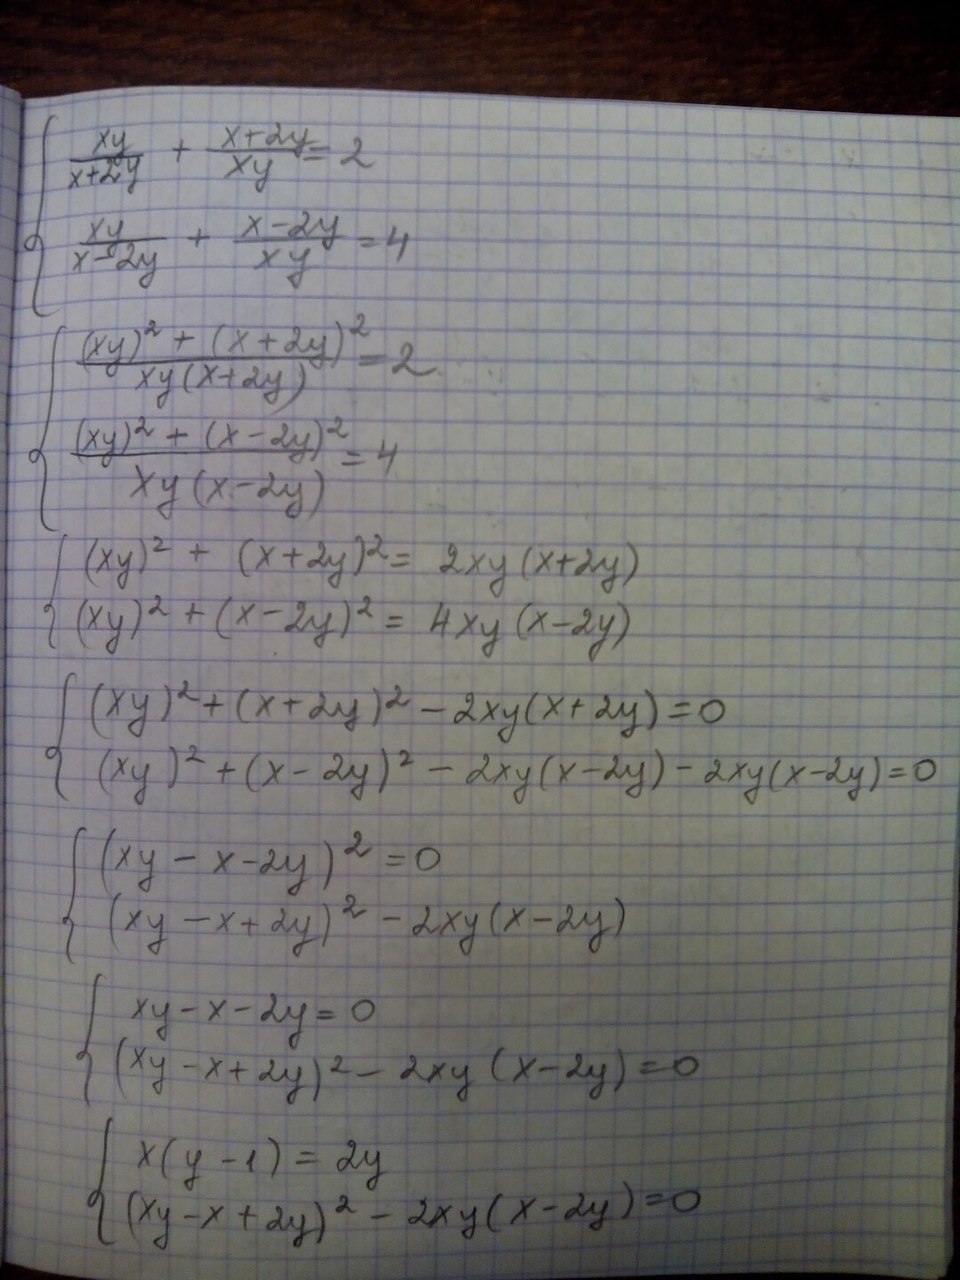 xy/(x+2y) + (x+2y)/xy = 2
xy/(x-2y) + (x-2y)/xy = 4
((xy)² + (x+2y)²)/(xy(x+2y)) = 2
((xy)² + (x-2y)²)/(xy(x-2y)) = 4
(xy)² + (x+2y)² = 2xy(x+2y)
(xy)² + (x-2y)² = 4xy(x-2y)
(xy)² + (x+2y)² - 2xy(x+2y) = 0
(xy)² + (x-2y)² - 2xy(x-2y) - 2xy(x-2y) = 0
(xy - x - 2y)² = 0
(xy - x + 2y)² - 2xy(x-2y)
xy - x - 2y = 0
(xy - x + 2y)² - 2xy(x-2y) = 0
x(y-1) = 2y
(xy - x + 2y)² - 2xy(x-2y) = 0